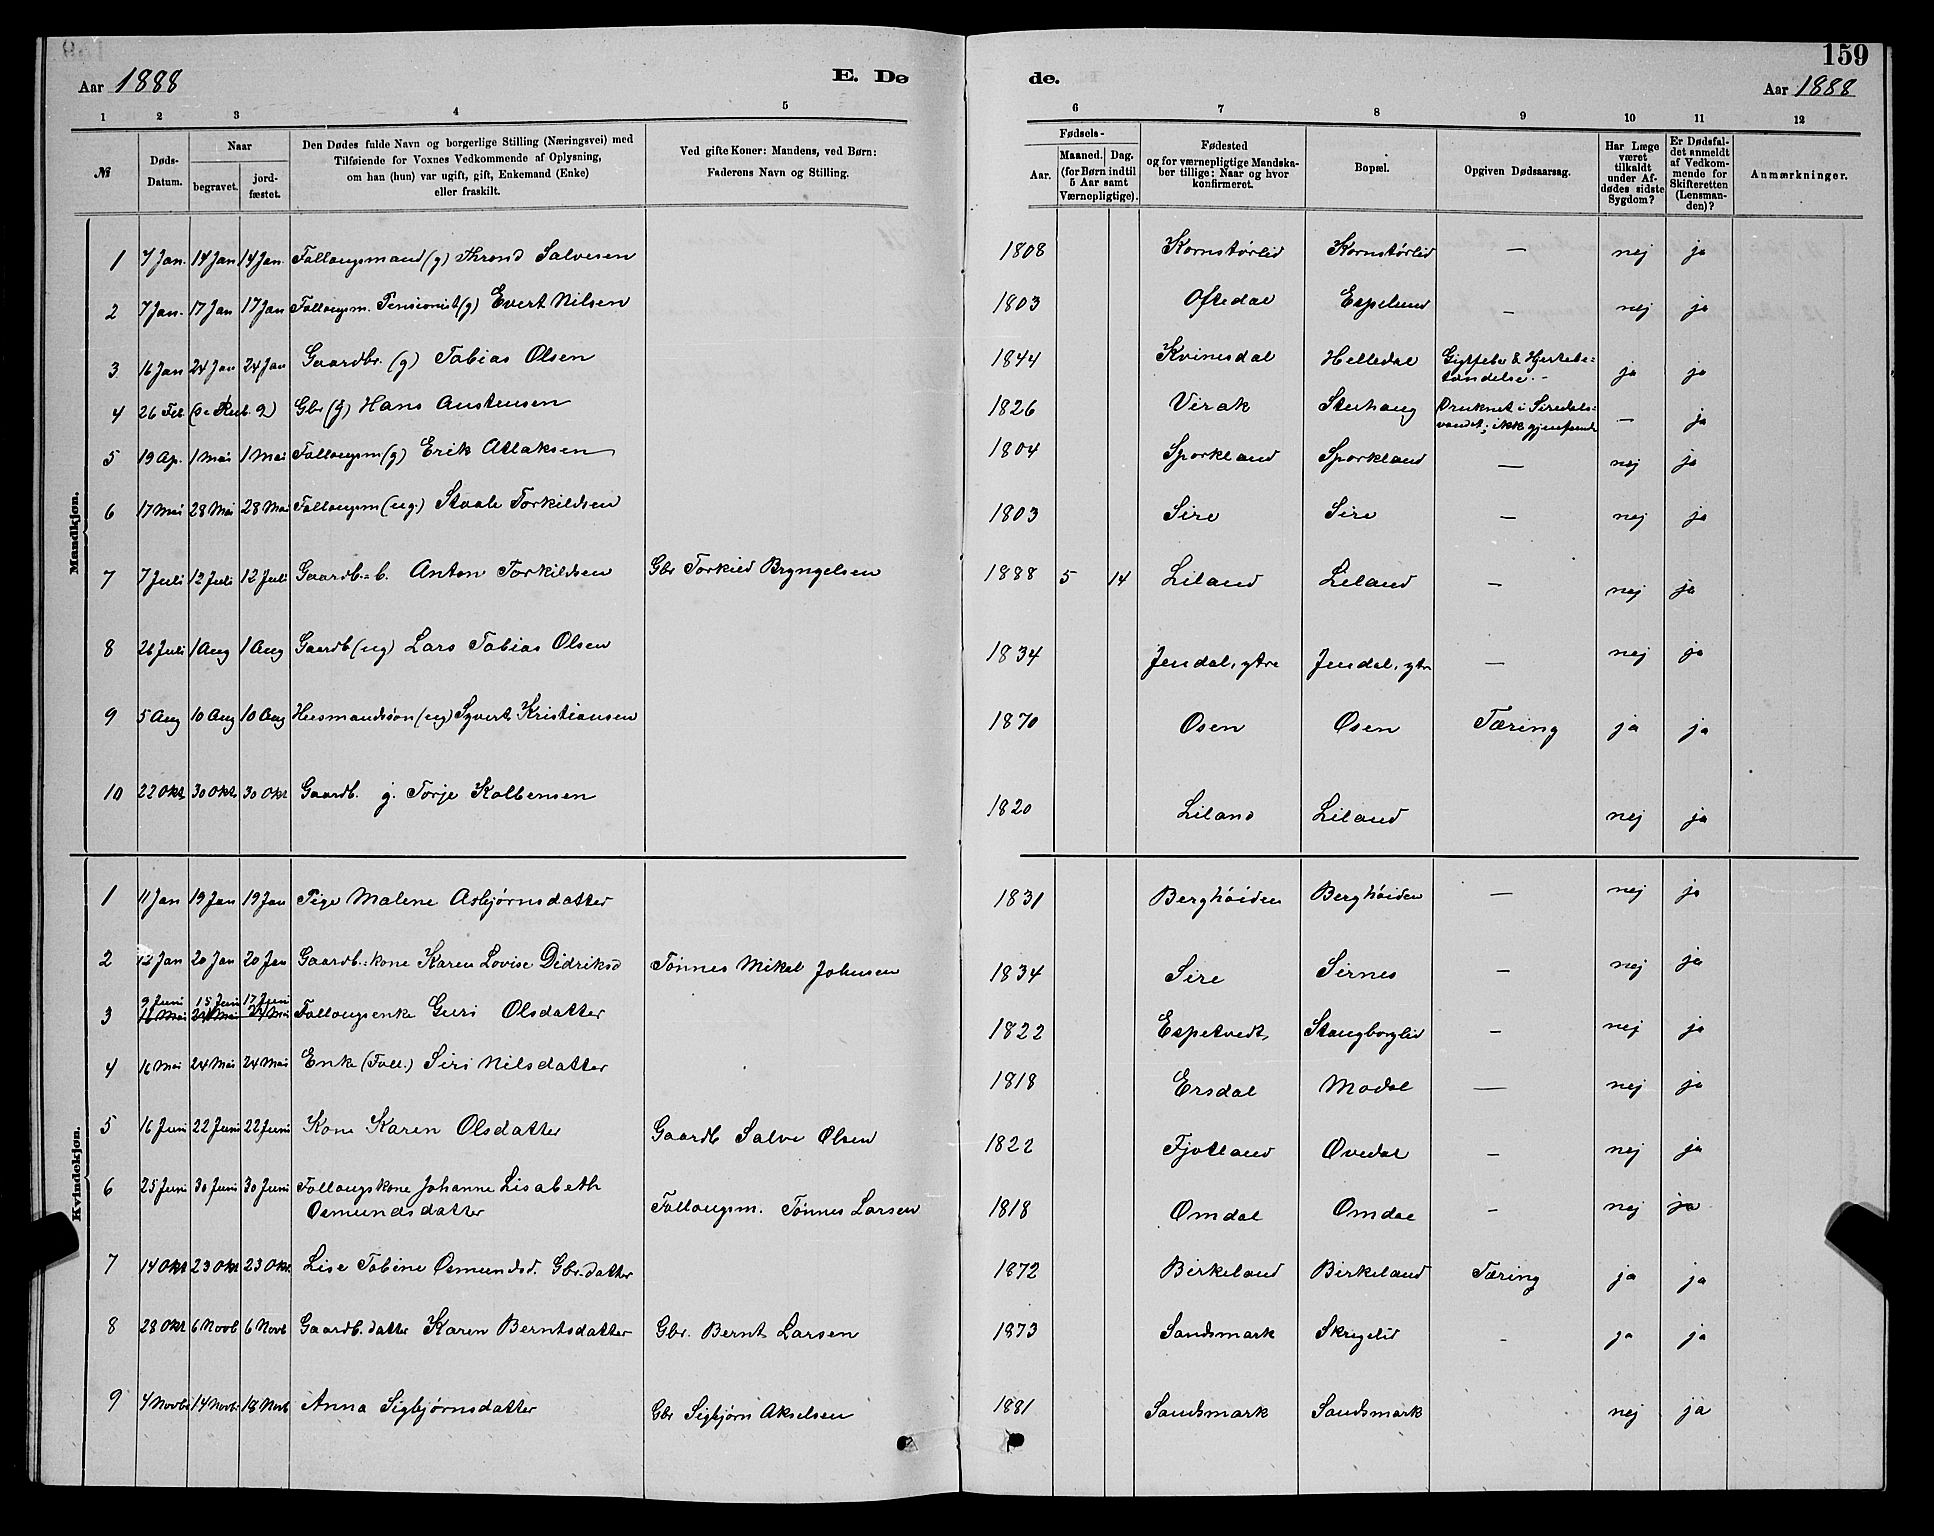 159
Aar 1888
E. Dø
de.
Aar 1888
1 2 3 4 5 6 7 8 9 10 11 12
№
Døds-
Datum.
Naar
begravet.
jord-
fæstet.
Den Dødes fulde Navn og borgerlige Stilling (Næringsvei) med
Tilføiende for Voxnes Vedkommende af Oplysning,
om han (hun) var ugift, gift, Enkemand (Enke)
eller fraskilt.
Ved gifte Koner: Mandens, ved Børn:
Faderens Navn og Stilling.
Fødsels-
Aar.
Maaned. Dag.
(for Børn indtil
5 Aar samt
Værnepligtige).
Fødested
og for værnepligtige Mandska-
ber tillige: Naar og hvor
konfirmeret.
Bopæl.
Opgiven Dødsaarsag.
Har Læge
været
tilkaldt
under Af-
dødes sidste
Sygdom?
Er Dødsfal-
det anmeldt
af Vedkom-
mende for
Skifteretten
(Lensman-
den)?
Anmærkninger.
Mandkjøn.
1 7 Jan. 14 Jan 14 Jan. Follaugsmand (g) Thrond Salvesen 1808 Kornstørlid Kornstørlid — nej ja
2 7 Jan. 17 Jan 17 Jan Follaugsm. Pensionist (g) Evert Nilsen 1803 Oftedal Espelund — nej ja
3 16 Jan 24 Jan 24 Jan Gaardbr. (g) Tobias Olsen 1844 Kvinesdal Helledal Gigtfeber & Hjertebe=
tændelse. — ja ja
4 26 Feb. Gbr (g) Hans Austensen 1826 Virak Stuhaug Druknet i Siredals=
vandet; ikke gjenfunden — ja
5 19 Ap. 1 Mai 1 Mai Follaugsm (g) Erik Atlaksen 1804 Sporkland Sporkland — nej ja
6 17 Mai 28 Mai 28 Mai Follaugsm (ug.) Staale Torkildsen 1803 Sire Sire — nej ja
7 7 Juli 12 Juli 12 Juli Gaardb.=b. Anton Torkildsen Gbr Torkild Bryngelsen 1888 5 14 Liland Liland — nej ja
8 26 Juli 1 Aug 1 Aug Gaardb (ug) Lars Tobias Olsen 1834 Jendal, ytre Jendal, ytr — nej ja
9 5 Aug 10 Aug 10 Aug Husmandssøn (ug) Syvert Kristiansen 1870 Osen Osen Tæring ja ja
10 22 Okt 30 Okt. 30 Okt Gaardb. g. Torje Kolbensen 1820 Liland Liland nej ja
Kvindekjøn.
1 11 Jan 19 Jan 19 Jan Pige Malene Asbjørnsdatter 1831 Berghøiden Berghøiden — nej ja
2 12 Jan 20 Jan 20 Jan Gaardb.=kone Karen Lovise Didriksd Tønnes Mikal Johnsen 1834 Sire Sirnes — nej ja
9 Juni 15 Juni 17 Juni
3 16 Mai 24 Mai 24 Mai Follaugsenke Guri Olsdatter 1822 Espetvedt, Stangborglid — nej ja
4 16 Mai 24 Mai 24 Mai Enke (Foll.) Siri Nilsdatter 1818 Ersdal Modal — nej ja
5 16 Juni 22 Juni 22 Juni Kone Karen Olsdatter Gaardb Salve Olsen 1822 Fjotland Ovedal — nej ja
6 25 Juni 30 Juni 30 Juni Follaugskone Johanne Lisabeth
Osmundsdatter Follaugsm. Tønnes Larsen 1818 Omdal Omdal — nej ja
7 14 Okt 23 Okt 23 Okt. Lise Tobine Osmundsd. Gbr.datter 1872 Birkeland Birkeland Tæring ja ja
8 28 Okt 6 Novb 6 Novb Gaardb.datter Karen Berntsdatter Gbr. Bernt Larsen 1873 Sandsmark Skregelid - ja ja
9 4 Novb 14 Novb 18 Novb Anna Sigbjørnsdatter Gbr Sigbjørn Akselsen 1881 Sandsmark Sandsmark nej ja